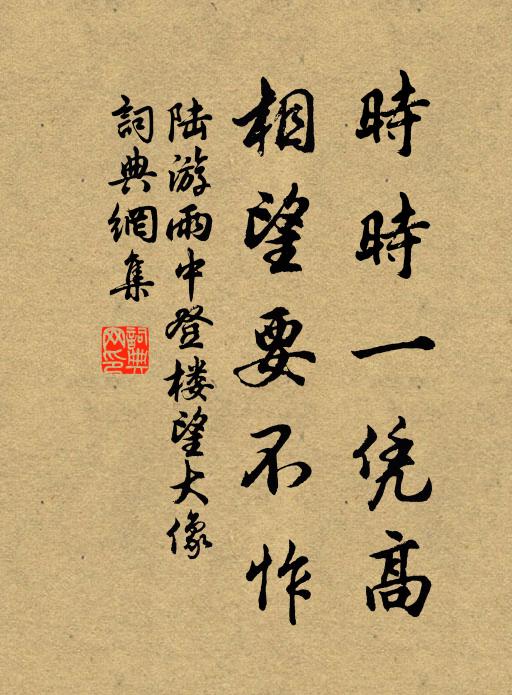 時時一凭高
相望要不怍
陆游雨中登楼望大像
詞典網集
詞典网印